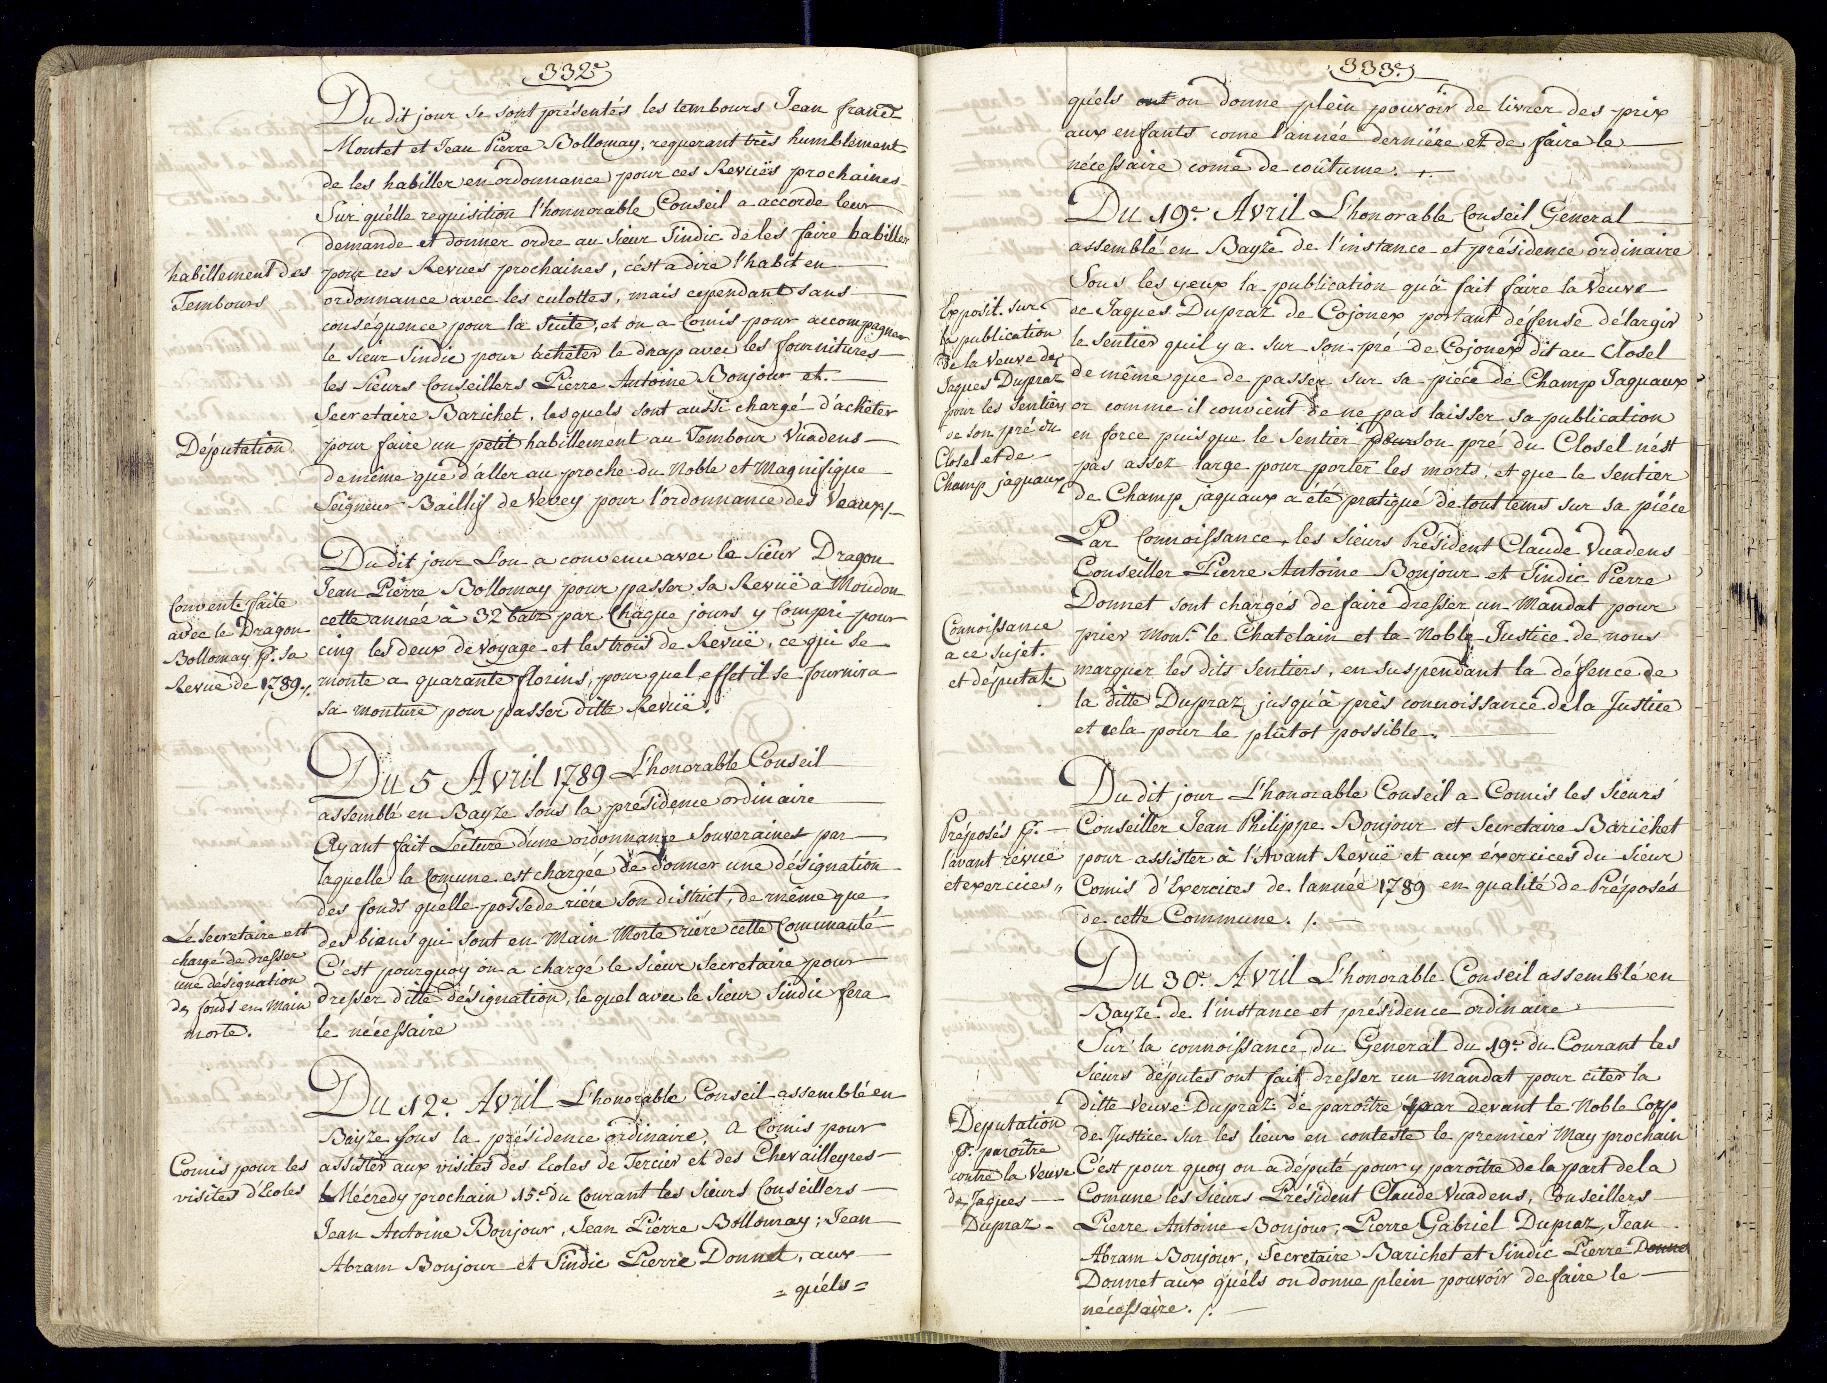 332e
Du dit jour se sont présentés les tembours Jean franc
Montet et Jean Pierre Bollomay, requerant très humblement
de les habiller en ordonnance pour ces Revuës prochaines
Sur qu'elle requisition l'honnorable Conseil a accorde leur
demande et donner ordre au Sieur Sindic de les faire habiller
habillement des
Tembours
pour ces Revues prochaines, c'ést a dire l'habit en
ordonnance avec les culottes, mais cependant sans
conséquence pour la Suite, et on a Comis pour accompagner
le sieur Sindic pour achêter le drap avec les fournitures
les Sieurs Conseillers Pierre Antoine Bonjour et
Secretaire Barichet, lesquels sont aussi chargé d'achêter
Députation
pour faire un petit habillement au Tembour Vuadens
de même que d'aller au proche du Noble et Magnifique
Seigneur Baillif de Vevey pour l'ordonnance des Veaux
Du dit jour L'on a convenu avec le Sieur Dragon
Jean Pierre Bollomay pour passer sa Revuë a Moudon
Convent. faite
avec le Dragon
Bollomay pr. sa
Revue de 1789
cette année à 32 batz par Chaque jours y Compri pour
cinq les deux de voyage et les trois de Revuë, ce qui se
monte a quarante florins, pour quel effet il se fournira
sa monture pour passer ditte Revuë.
Du 5 Avril 1789 L'honorable Conseil
assemblé en Bayze sous la présidence ordinaire
Ayant fait Lecture d'une ordonnance Souveraine par
laquelle la Comune est chargée de donner une désignation
des fonds quelle possede riére son district, de même que
Le Secretaire est
chargé de dresser
une désignation
des fonds en Main
morte.
des biens qui sont en Main Morte riére cette Comunauté
C'est pourquoy on a chargé le Sieur Secretaire pour
dresser ditte désignation, le quel avec le Sieur Sindic fera
le nécessaire
Du 12e Avril L'honorable Conseil assemblé en
Bayze sous la présidence ordinaire, A Comis pour
Comis pour les
visites d'Ecoles
assister aux visites des Ecoles de Tercier et des Chevailleyres
Mécredy prochain 15e du Courant les Sieurs Conseillers
Jean Antoine Bonjour, Jean Pierre Bollomay; Jean
Abram Bonjour et Sindic Pierre Donnet, aux
= quéls =
333e
quéls ont on donne plein pouvoir de livrer des prix
aux enfants come l'année derniére et de faire le
nécessaire come de coûtume.
Du 19e Avril L'honorable Conseil General
assemblé en Bayze de l'instance et présidence ordinaire
Exposit. sur
la publication
de la Veuve de
Jaques Dupraz
pour les Sentiers
de son pré du
Closel et de
Champ jaquaux
Sous les yeux la publication qu'à fait faire la Veuve
de Jaques Dupraz de Cojonex portant défense d'élargir
le Sentier quil y a sur son pré de Cojonex dit au Closel
de même que de passer sur sa piéce de Champ Jaquaux
or comme il convient de ne pas laisser sa publication
en force puisque le Sentier pour son pré du Closel n'ést
pas assez large pour porter les morts, et que le Sentier
de Champ jaquaux a été pratiqué de tout tems sur sa piéce
Par Connoissance, les Sieurs Président Claude Vuadens
Conseiller Pierre Antoine Bonjour et Sindic Pierre
Donnet sont chargés de faire dresser un Mandat pour
Connoissance
a ce sujet.
et députat.
prier Monr. le Chatelain et la Noble Justice de nous
marquer les dits Sentiers, en suspendant la défence de
la ditte Dupraz jusqu'à près connoissance de la Justice
et cela pour le plûtot possible.
Du dit jour L'honorable Conseil a Comis les Sieurs
Préposés pr.
l'avant révuë
et exercices
Conseiller Jean Philippe Bonjour et Secretaire Barichet
pour assister à l'Avant Revuë et aux éxercices du Sieur
Comis d'Exercices de l'année 1789 en qualité de Préposés
de cette Commune.
Du 30e Avril L'honorable Conseil assemblé en
Bayze de l'instance et présidence ordinaire
Sur la connoissance du General du 19e du Courant les
Sieurs députés ont fait dresser un Mandat pour citer la
Deputation
pr. paroître
contre la Veuve
de Jaques
Dupraz
ditte Veuve Dupraz de paroître par devant le Noble Corp
de Justice sur les lieux en conteste le premier May prochain
C'ést pour quoy on a député pour y paroître de la part de la
Comune les Sieurs Président Claude Vuadens, Conseillers
Pierre Antoine Bonjour, Pierre Gabriel Dupraz, Jean
Abram Bonjour, Secretaire Barichet et Sindic Pierre Donne
Donnet aux quéls on donne plein pouvoir de faire le
nécessaire.